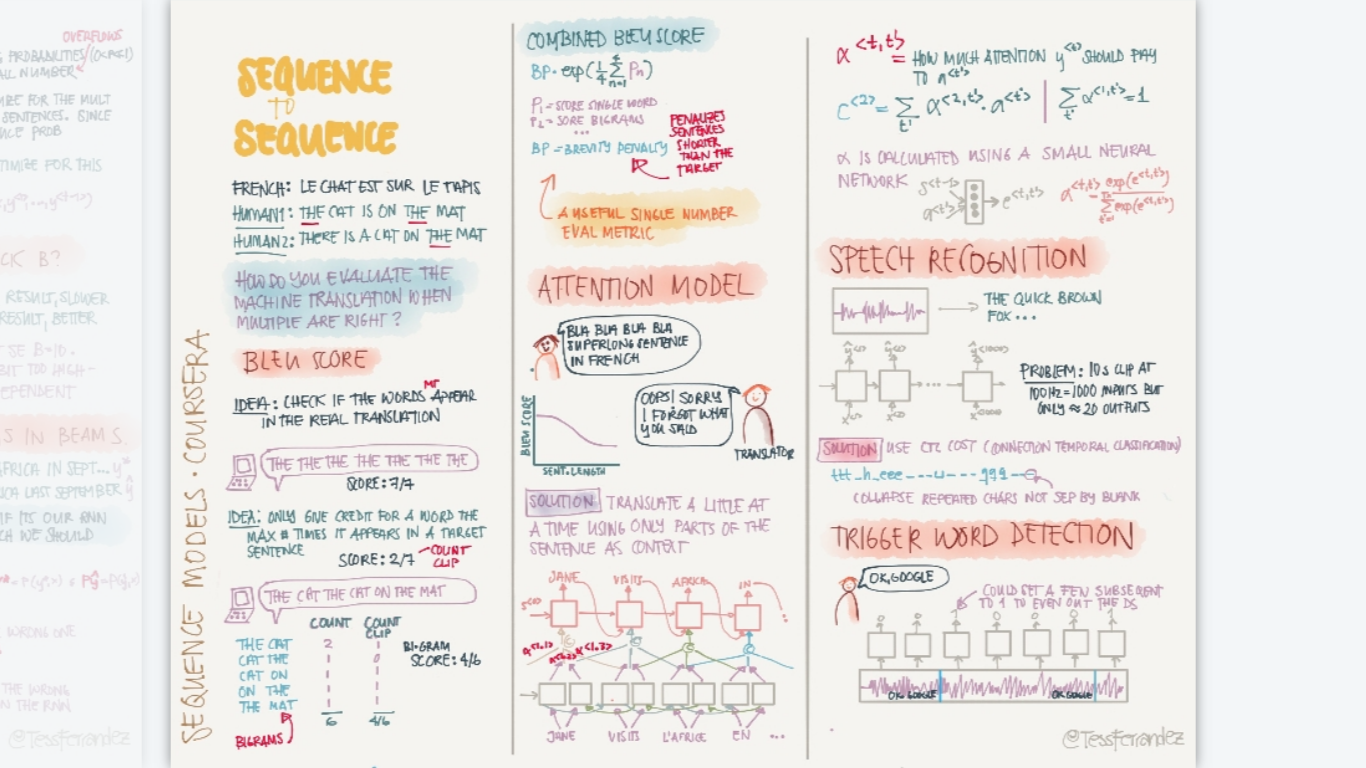 OVERFLOWS
PROBABILITIES
ALL NUMBER
FOR THE MULT
SENTENCES. SINCE
PROB
FOR THIS
CK B?
RESULT, SLOWER
RESULT, BETTER
BIT TOO HIGH-
S IN BEAMS.
AFRICA IN SEPT...
LAST SEPTEMBER
IF ITS OUR RNN
WE SHOULD
WRONG ONE
THE WRONG
THE RNN
@TessFerrandez
SEQUENCE MODELS · COURSERA
SEQUENCE
TO
SEQUENCE
FRENCH: LE CHAT EST SUR LE TAPIS
HUMAN1: THE CAT IS ON THE MAT
HUMAN2: THERE IS A CAT ON THE MAT
HOW DO YOU EVALUATE THE
MACHINE TRANSLATION WHEN
MULTIPLE ARE RIGHT?
BLEU SCORE
MT
IDEA: CHECK IF THE WORDS APPEAR
IN THE REAL TRANSLATION
THE THE THE THE THE THE THE
SCORE: 7/7
IDEA: ONLY GIVE CREDIT FOR A WORD THE
MAX # TIMES IT APPEARS IN A TARGET
SENTENCE
SCORE: 2/7
COUNT
CLIP
THE CAT THE CAT ON THE MAT
COUNT COUNT
CLIP
THE CAT 2 1
CAT THE 1 0
CAT ON 1 1
ON THE 1 1
THE MAT 1 1
6 4/6
BIGRAM
SCORE: 4/6
BIGRAMS
COMBINED BLEU SCORE
BP · exp(1/4 Σ Pn)
n=1
P1 = SCORE SINGLE WORD
P2 = SORE BIGRAMS
...
BP = BREVITY PENALTY
PENALIZES
SENTENCES
SHORTER
THAN THE
TARGET
A USEFUL SINGLE NUMBER
EVAL METRIC
ATTENTION MODEL
BLA BLA BLA BLA
SUPERLONG SENTENCE
IN FRENCH
OOPS! SORRY
I FORGOT WHAT
YOU SAID
TRANSLATOR
BLEU SCORE
SENT. LENGTH
SOLUTION TRANSLATE A LITTLE AT
A TIME USING ONLY PARTS OF THE
SENTENCE AS CONTEXT
JANE VISITS AFRICA IN ...
S<0>
C C C C
JANE VISITS L'AFRICE EN ...
α<t,t'> = HOW MUCH ATTENTION y<t> SHOULD PAY
TO a<t'>
C<2> = Σ α<2,t'> · a<t'> Σ α<1,t'> = 1
t' t'
α IS CALCULATED USING A SMALL NEURAL
NETWORK
S<t-1>
a<t'>
e<t,t'>
α<t,t'> = exp(e<t,t'>)
Σ exp(e<t,t'>)
SPEECH RECOGNITION
THE QUICK BROWN
FOX...
ŷ<1> ŷ<2> ŷ<1000>
...
x<1> x<2> x<1000>
PROBLEM: 10s CLIP AT
100Hz = 1000 INPUTS BUT
ONLY ≈ 20 OUTPUTS
SOLUTION USE CTC COST (CONNECTION TEMPORAL CLASSIFICATION)
ttt_h_eee---u---qqq--
COLLAPSE REPEATED CHARS NOT SEP BY BLANK
TRIGGER WORD DETECTION
OK, GOOGLE
COULD SET A FEW SUBSEQUENT
TO 1 TO EVEN OUT THE 0s
0 0 1 0 0 0 1
OK, GOOGLE OK GOOGLE
@TessFerrandez